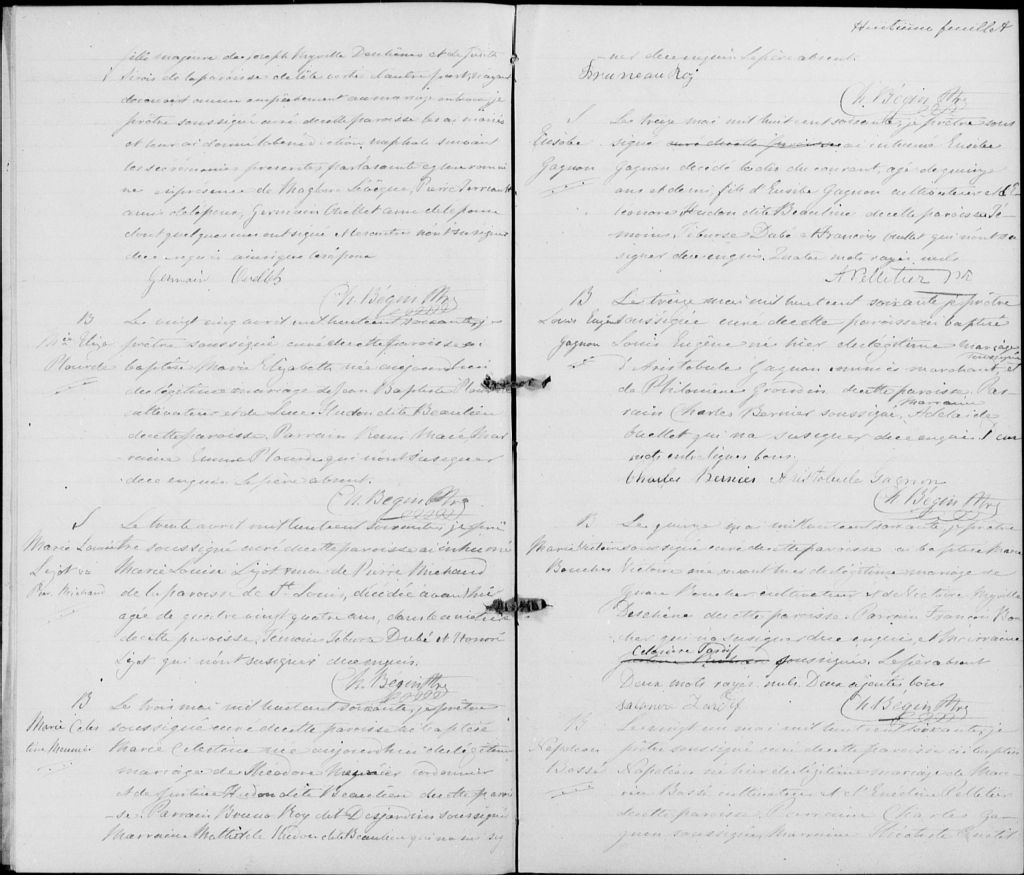 fille majeure de Joseph Miville Deschènes et de Judith
Sirois de la paroisse de l'Isle verte d'autre part, n'ayant
découvert aucun empêchement au mariage entr'eux je
prêtre soussigné curé de cette paroisse les ai mariés
et leur ai donné la bénédiction nuptiale suivant
les cérémonies prescrites par la sainte eglise romai
ne en présence de Magloire Pierre
amis de l'époux, Germain Ouellet ami de l'épouse
dont quelques uns ont signé et les autres n'ont su signer
de ce enquis ainsi que les époux
Germain Ouellet
Ch. Bégin Ptre
B
Mie Eliza
Plourde
Le vingt cinq avril mil huit cent soixante, je
prêtre soussigné curé de cette paroisse ai
baptisé Marie Elizabeth née aujourd'hui
du légitime mariage de Jean Baptiste Plourde
cultivateur et de Luce Hudon dite Beaulieu
de cette paroisse. Parrain Rémi Marraine
Emma Plourde qui n'ont su signer
de ce enquis. Le père absent.
Ch. Bégin Ptre
S
Marie Louise
Lizot ve
Pre. Michaud
Le trente avril mil huit cent soixante, je prê
tre soussigné curé de cette paroisse ai inhumé
Marie Louise Lizot veuve de Pierre Michaud
de la paroisse de St Louis, décédée avant hier
agée de quatre vingt quatre ans, dans le cimetière
de cette paroisse, Témoins Tiburse Dubé et Honoré
Lizot qui n'ont su signer de ce enquis.
Ch. Bégin Ptre
B
Marie Céles
tine Meunier
Le trois mai mil huit cent soixante, je prêtre
soussigné curé de cette paroisse ai baptisé
Marie Célestine née aujourd'hui du légitime
mariage de Théodore Meunier cordonnier
et de Justine Hudon dite Beaulieu de cette parois
se. Parrain Bruno Roy dit Desjardins soussigné
Marraine Mathilde Hudon dite Beaulieu qui n'a su sig
Huitième feuillet
ner de ce enquis. Le père absent.
Bruneau Roy
Ch. Bégin Ptre
S
Eusèbe
Gagnon
Le treize mai mil huit cent soixante, je prêtre sous
signé curé de cette paroisse ai inhumé Eusèbe
Gagnon décédé le dix du courant, agé de quinze
ans et demi, fils d'Eusèbe Gagnon cultivateur et d'E
léonore Hudon dite Beaulieu de cette paroisse. Té
moins, Tiburse Dubé et François Ouellet qui n'ont su
signer de ce enquis. Quatre mots rayés nuls
A Pelletier Ptr
B
Louis Eugène
Gagnon
Le treize mai mil huit cent soixante je prêtre
soussigné curé de cette paroisse ai baptisé
Louis Eugène né hier du légitime mariage
d'Aristobule Gagnon marchand et
de Philomène de cette paroisse. Par
marraine
rain Charles Bernier soussigné, Adélaide
Ouellet qui n'a su signer de ce enquis.
mots entre lignes bons.
Charles Bernier Aristobule Gagnon
Ch. Bégin Ptre
B
Marie Victoire
Boucher
Le quinze mai mil huit cent soixante, je prêtre
soussigné curé de cette paroisse ai baptisé Marie
Victoire née avant hier du légitime mariage de
Boucher cultivateur et de Victoire Miville
Deschène de cette paroisse. Parrain François Bou
cher qui n'a su signer de ce enquis, et Marraine
Tardif
soussignée. Le père absent
Deux mots rayés nuls. Deux ajoutés bons
Tardif
Ch. Bégin Ptre
B
Napoléon
Bossé
Le vingt un mai mil huit cent soixante, je
prêtre soussigné curé de cette paroisse ai baptisé
Napoléon né hier du légitime mariage de
Bossé cultivateur et d'Emélie Pelletier
de cette paroisse. Parrain Charles Ga
gnon soussigné, Marraine